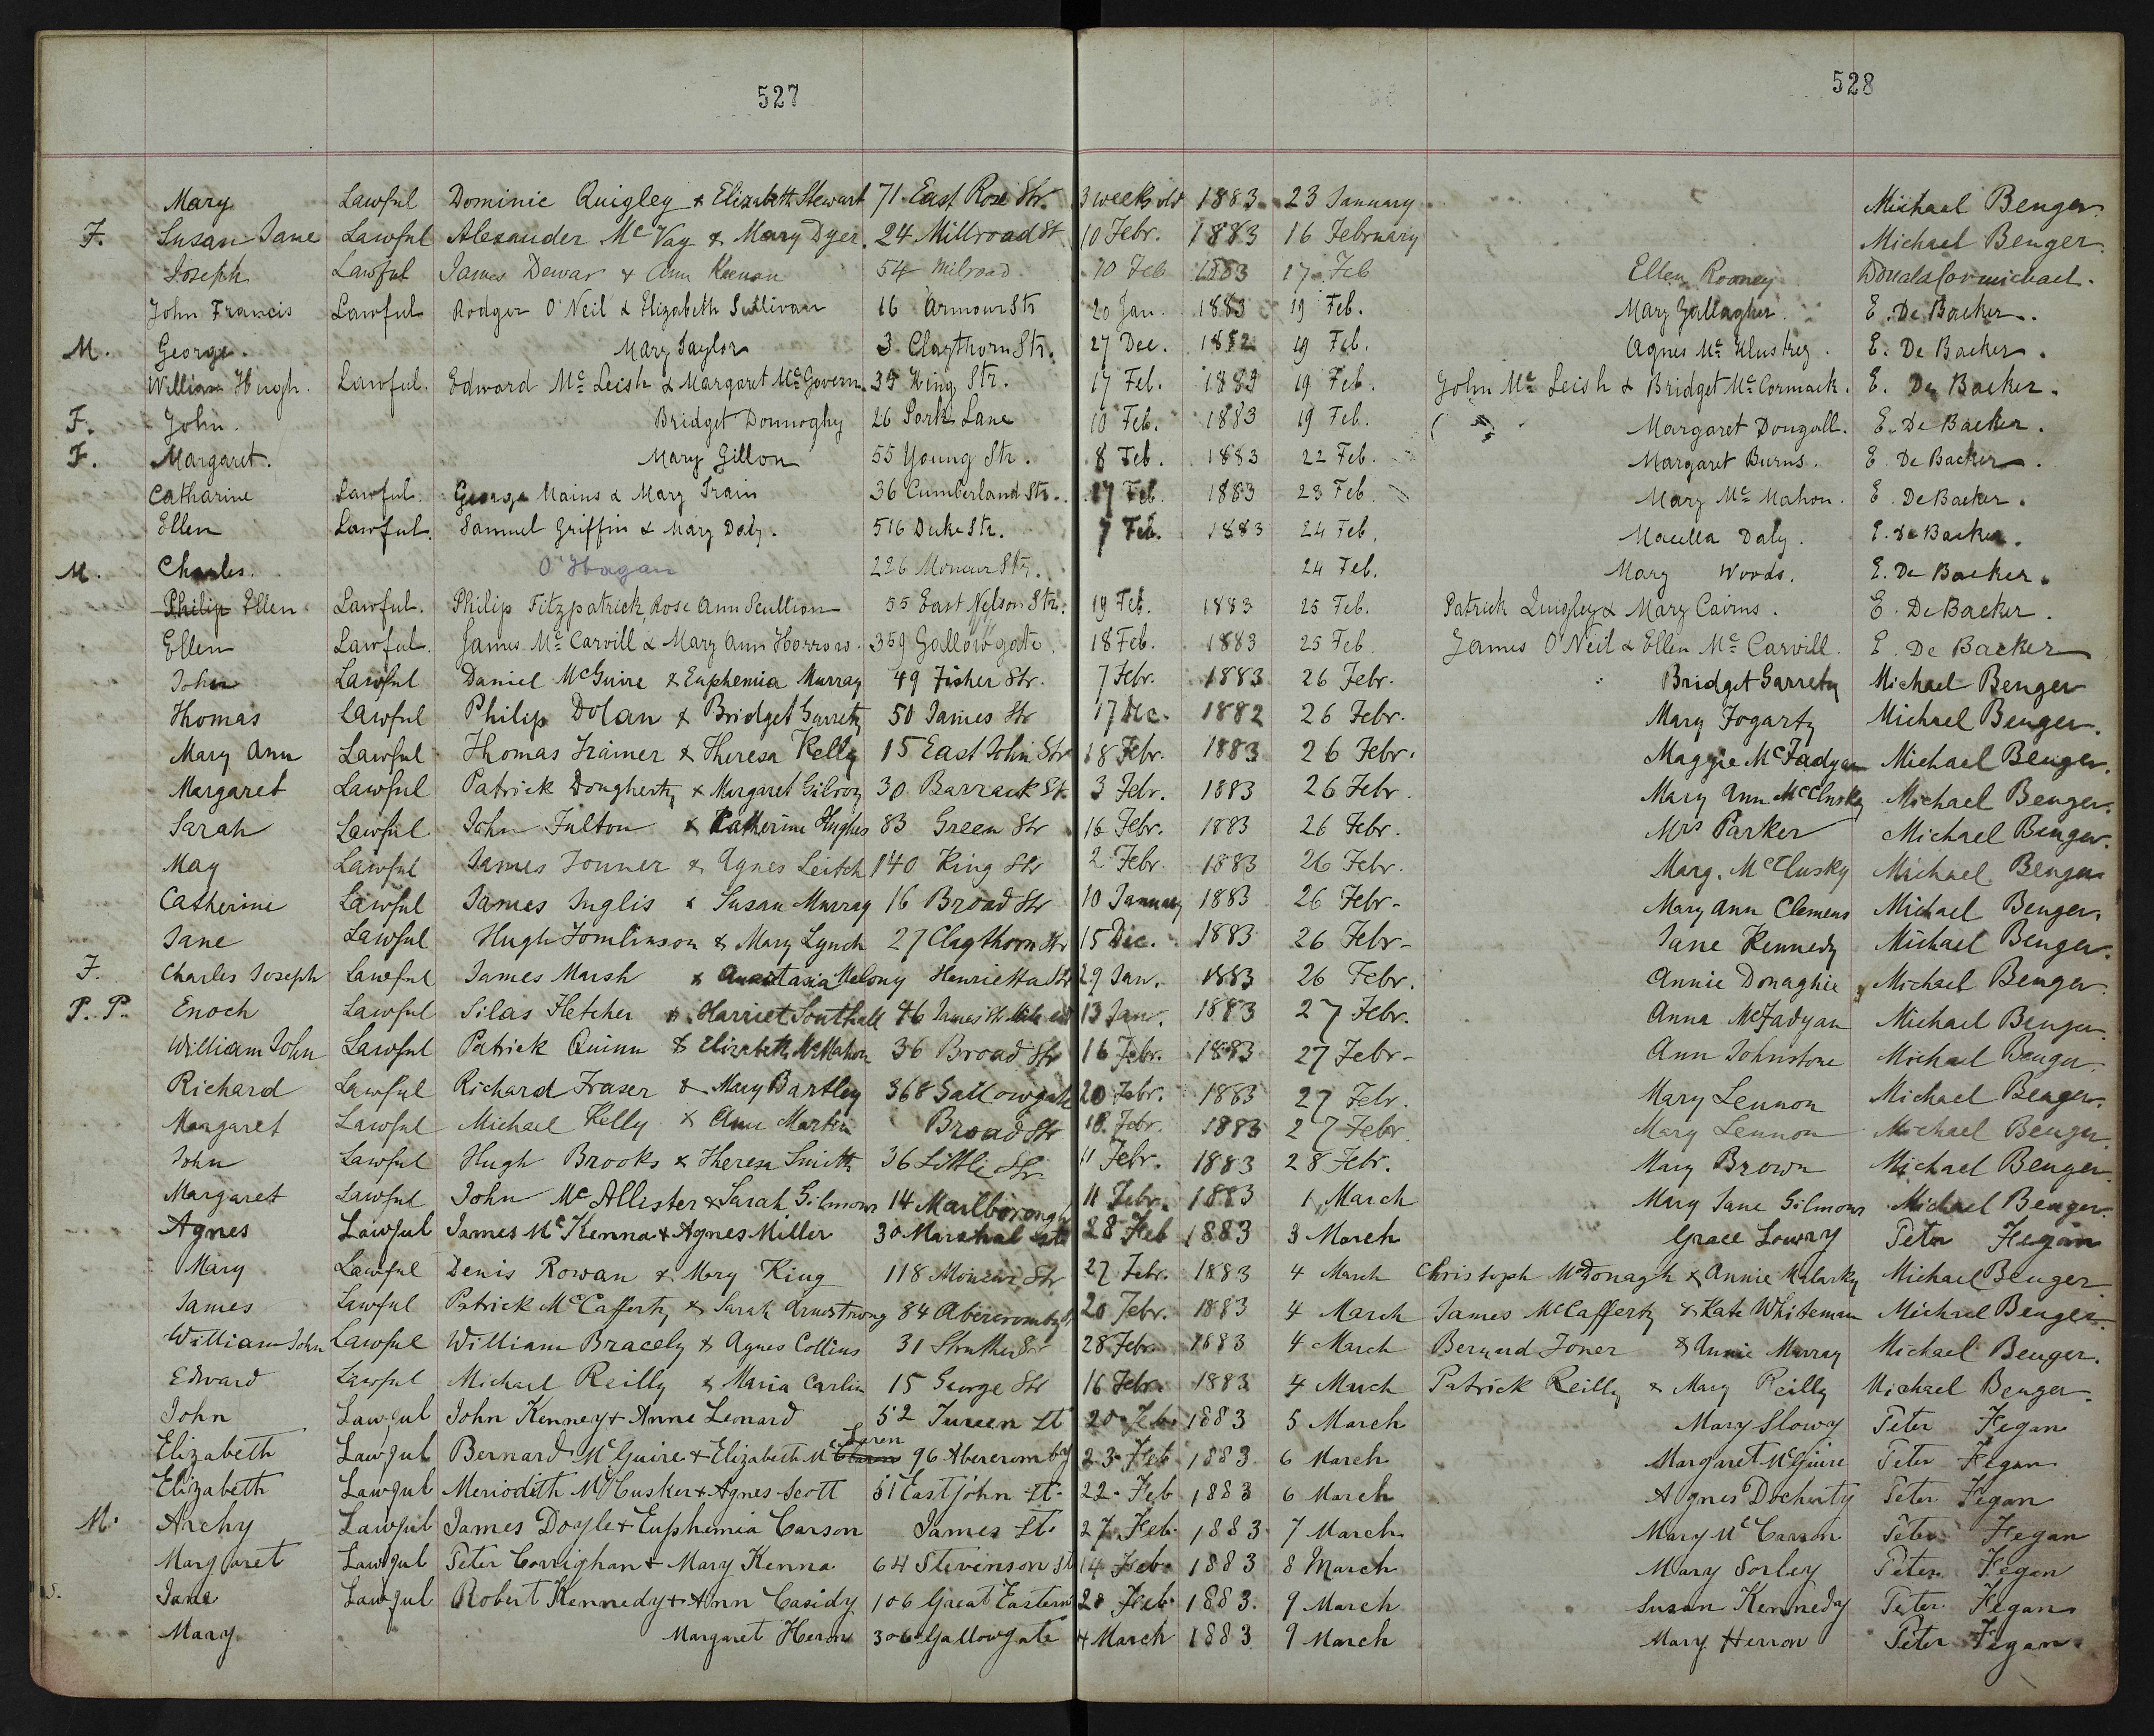 527
528
Mary Lawful Dominic Quigley & Elizabeth Stewart 71 East Rose Str. 3 weeks old 1883 23 January Michael Benger
F. Susan Jane Lawful Alexander McVay & Mary Dyer. 24 Millroad St 10 Febr. 1883 16 February Michael Benger
Joseph Lawful James Dewar & Ann Keenan 54 Milroad 10 Feb 1883 17 Feb Ellen Rooney Donald Carmichael.
John Francis Lawful Rodger O'Neil & Elizabeth Sullivan 16 Armour Str 20 Jan. 1883 19 Feb. Mary Gallagher. E. De Backer.
M. George. Mary Taylor 3 Claythorn Str. 27 Dec. 1882 19 Feb. Agnes Mc E. De Backer.
William Hugh. Lawful. Edward Mc Leish & Margaret McGovern. 35 King Str. 17 Feb. 1883 19 Feb. John Mc Leish & Bridget McCormack. E. De Backer.
F. John. Bridget Donnoghy 26 Park Lane 10 Feb. 1883 19 Feb. Margaret Dougall. E. De Backer.
F. Margaret. Mary Gillon 55 Young Str. 8 Feb. 1883 22 Feb. Margaret Burns. E. De Backer.
Catharine Lawful. George Mains & Mary Train 36 Cumberland Str. 17 Feb. 1883 23 Feb. Mary Mc Mahon. E. De Backer.
Ellen Lawful. Samuel Griffin & Mary Daly. 516 Duke Str. 7 Feb. 1883 24 Feb. Daly. E. De Backer.
M. Charles. O'Hagan 226 Moncur Str. 24 Feb. Mary Woods. E. De Backer.
Philip Ellen Lawful. Philip Fitzpatrick, Rose Ann Scullion 55 East Nelson Str. 19 Feb. 1883 25 Feb. Patrick Quigley & Mary Cairns. E. De Backer.
Ellen Lawful. James Mc Carvill & Mary Ann Horrows. 359 Gallowgate. 18 Feb. 1883 25 Feb. James O'Neil & Ellen Mc Carvill. E. De Backer
John Lawful Daniel McGuire & Euphemia Murray 49 Fisher Str. 7 Febr. 1883 26 Febr. Bridget Garrety Michael Benger
Thomas Lawful Philip Dolan & Bridget Garrety 50 James Str 17 Dec. 1882 26 Febr. Mary Fogarty Michael Benger.
Mary Ann Lawful Thomas Trainer & Theresa Kelly 15 East John Str 18 Febr. 1883 26 Febr. Maggie McFadyen Michael Benger.
Margaret Lawful Patrick Dougherty & Margaret Gilroy 30 Barrack St. 3 Febr. 1883 26 Febr. Mary Ann McClusky Michael Benger.
Sarah Lawful John Fulton & Katherine Hughes 83 Green Str 16 Febr. 1883 26 Febr. Mrs Parker Michael Benger.
May Lawful James Tonner & Agnes Leitch 140 King Str 2 Febr. 1883 26 Febr. Marg. McClusky Michael Benger
Catherine Lawful James Inglis & Susan Murray 16 Broad Str 10 January 1883 26 Febr. Mary Ann Clemens Michael Benger.
Jane Lawful Hugh Tomlinson & Mary Lynch 27 Claythorn Str 15 Dec. 1883 26 Febr. Jane Kennedy Michael Benger.
F. Charles Joseph Lawful James Marsh & Anastasia Melony Henrietta Str 29 Jan. 1883 26 Febr. Annie Donaghie Michael Benger.
P. P. Enoch Lawful Silas Fletcher & Harriet Southall 46 James Str Mile end 13 Jan. 1883 27 Febr. Anna McFadyan Michael Benger.
William John Lawful Patrick Quinn & Elizabeth McMahon 36 Broad Str 16 Febr. 1883 27 Febr. Ann Johnstone Michael Benger.
Richard Lawful Richard Fraser & Mary Bartley 368 Gallowgate 20 Febr. 1883 27 Febr. Mary Lennon Michael Benger.
Margaret Lawful Michael Kelly & Ann Martin Broad Str 18 Febr. 1883 27 Febr. Mary Lennon Michael Benger.
John Lawful Hugh Brooks & Theresa Smith 36 Little Str. 11 Febr. 1883 28 Febr. Mary Brown Michael Benger.
Margaret Lawful John Mc Allister & Sarah Gilmour 14 Marlborough 11 Febr. 1883 1 March Mary Jane Gilmour Michael Benger.
Agnes Lawful James McKenna & Agnes Miller 30 Marshal St 28 Feb 1883 3 March Grace Lowry Peter Fegan
Mary Lawful Denis Rowan & Mary King 118 Moncur Str 27 Febr. 1883 4 March Christoph McDonagh & Annie Malarky Michael Benger.
James Lawful Patrick McCafferty & Sarah Armstrong 84 Abercromby St 20 Febr. 1883 4 March James McCafferty & Kate Whiteman Michael Benger.
William John Lawful William Bracely & Agnes Collins 31 Struther Str 28 Febr. 1883 4 March Bernard Toner & Annie Murray Michael Benger.
Edward Lawful Michael Reilly & Maria Carlin 15 George Str 16 Febr. 1883 4 March Patrick Reilly & Mary Reilly Michael Benger.
John Lawful John Kenney & Anne Leonard 52 Tureen St 20 Feb 1883 5 March Mary Slowy Peter Fegan
Elizabeth Lawful Bernard McGuire & Elizabeth McLaren 96 Abercromby 23 Feb 1883 6 March Margaret McGuire Peter Fegan
Elizabeth Lawful Meriodith McCusker & Agnes Scott 51 East john St. 22 Feb 1883 6 March Agnes Docherty Peter Fegan
M. Archy Lawful James Doyle & Euphemia Carson James St. 27 Feb. 1883 7 March Mary McCarron Peter Fegan
Margaret Lawful Peter Corrighan & Mary Kenna 64 Stevinson St 14 Feb. 1883 8 March Mary Sorley Peter Fegan
S. Jane Lawful Robert Kennedy & Ann Casidy 106 Great Eastern 20 Feb. 1883. 9 March Susan Kennedy Peter Fegan
Mary Margaret Heron 306 Gallowgate 4 March 1883 9 March Mary Herron Peter Fegan